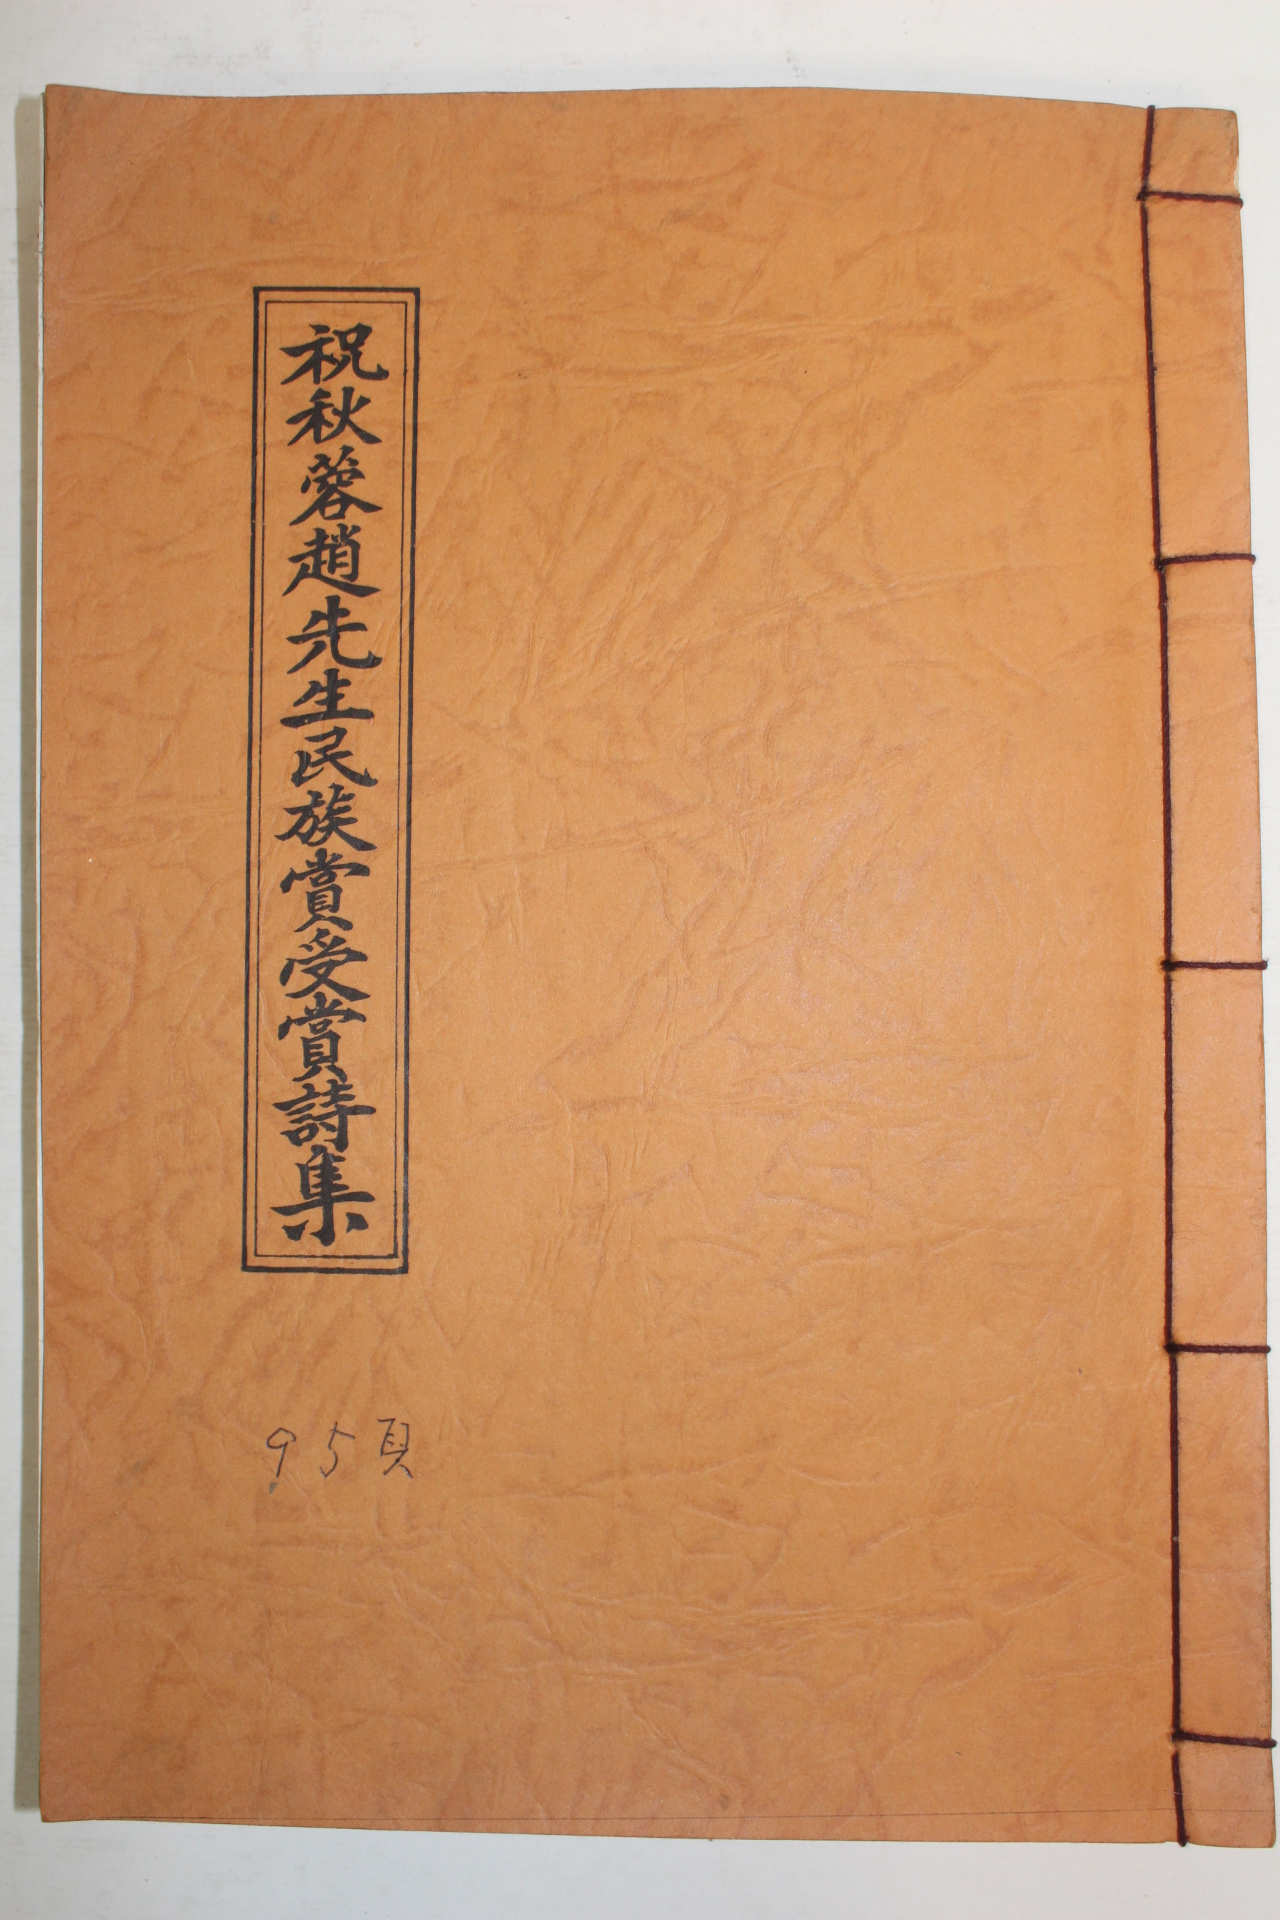 祝秋蓉趙先生民族賞受賞詩集
95頁